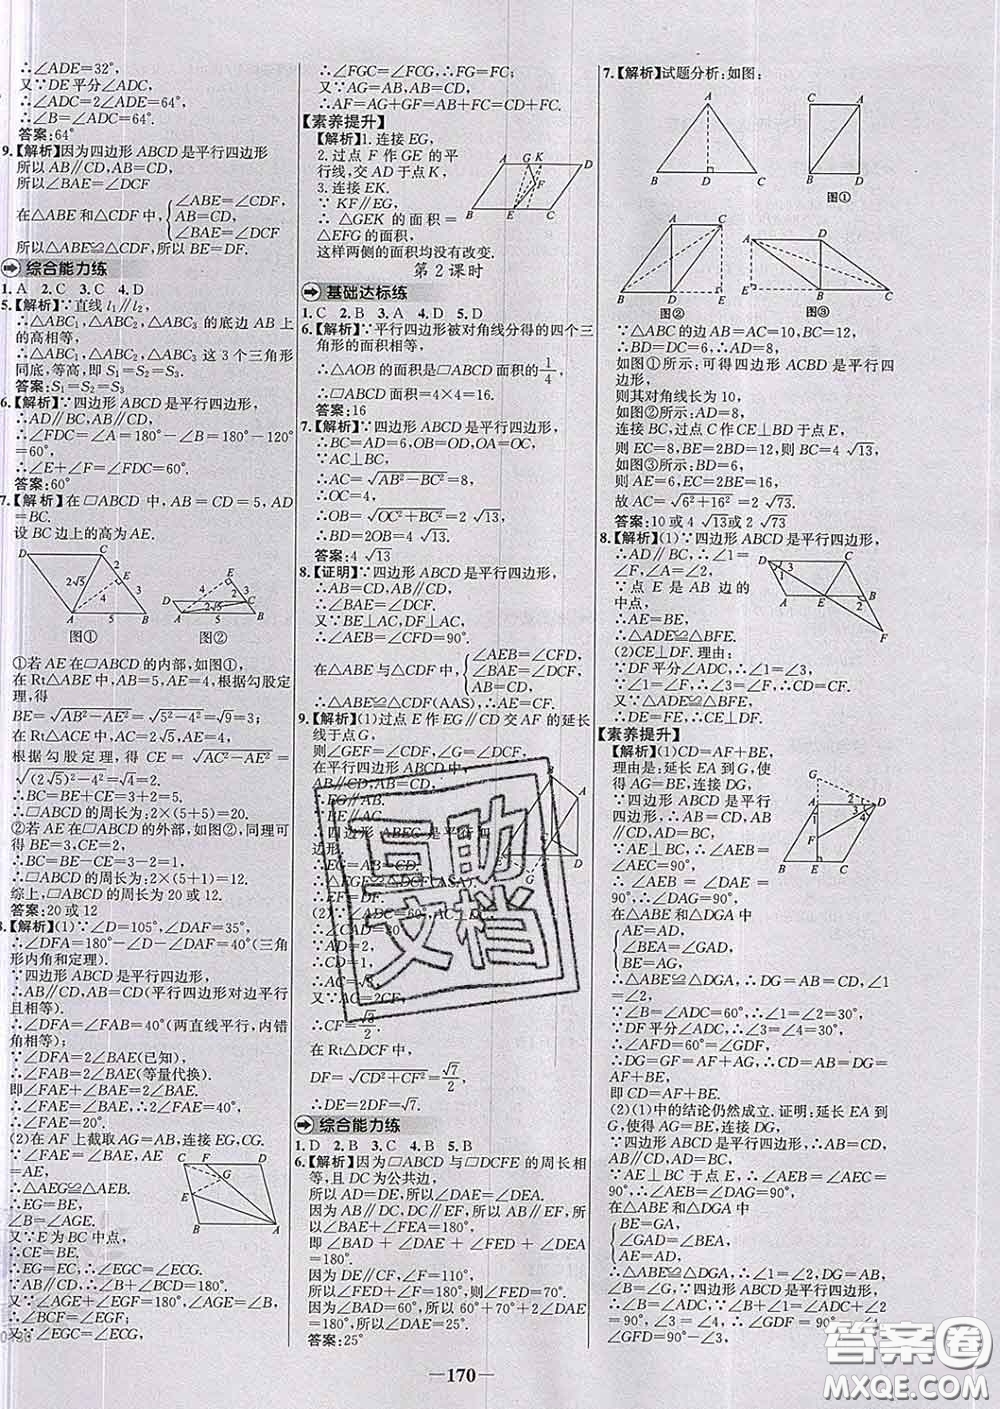 ∴∠ADE=32°,
又∵DE平分∠ADC,
∴∠ADC=2∠ADE=64°.
∴∠B=∠ADC=64°.
答案:64°
9.【解析】因为四边形ABCD是平行四边形
所以AB∥CD,AB=CD,
所以∠BAE=∠DCF
在△ABE和△CDF中,{∠ABE=∠CDF, AB=CD, ∠BAE=∠DCF
所以△ABE≌△CDF,所以BE=DF.
综合能力练
1.A 2.C 3.C 4.D
5.【解析】∵直线l₁∥l₂,
∴△ABC₁,△ABC₂,△ABC₃的底边AB上
的高相等,
∴△ABC₁,△ABC₂,△ABC₃这3个三角形
同底,等高,即S₁=S₂=S₃.
答案:S₁=S₂=S₃
6.【解析】∵四边形ABCD是平行四边形,
∴AD∥BC,AB∥CD,
∴∠FDC=∠A=180°-∠B=180°-120°
=60°,
∴∠E+∠F=∠FDC=60°.
答案:60°
7.【解析】在□ABCD中,AB=CD=5,AD
=BC.
设BC边上的高为AE.
D C 2√5 E 3 4 3 A 5 B
图①
E 4 3 D C 2√5 A 5 B
图②
①若AE在□ABCD的内部,如图①,
在Rt△ABE中,AB=5,AE=4,根据勾股定
理,得
BE=√(AB²-AE²)=√(5²-4²)=√9=3;
在Rt△ACE中,AC=2√5,AE=4,
根据勾股定理,得CE=√(AC²-AE²)=
√((2√5)²-4²)=√4=2,
∴BC=BE+CE=3+2=5.
∴□ABCD的周长为:2×(5+5)=20.
②若AE在□ABCD的外部,如图②,同理可
得BE=3,CE=2,
∴BC=BE-CE=3-2=1,
∴□ABCD的周长为:2×(5+1)=12.
综上,□ABCD的周长为20或12
答案:20或12
【解析】(1)∵∠D=105°,∠DAF=35°,
∴∠DFA=180°-∠D-∠DAF=40°(三角
形内角和定理).
∵四边形ABCD是平行四边形,
∴AB∥CD,AB=CD(平行四边形对边平行
且相等).
∴∠DFA=∠FAB=40°(两直线平行,内错
角相等);
∵∠DFA=2∠BAE(已知),
∴∠FAB=2∠BAE(等量代换).
即∠FAE+∠BAE=2∠BAE.
∴∠FAE=∠BAE;∴2∠FAE=40°,
∴∠FAE=20°.
(2)在AF上截取AG=AB,连接EG,CG.
∵∠FAE=∠BAE,AE
=AE,
∴△AEG≌△AEB.
∴EG=BE,
∠B=∠AGE.
又∵E为BC中点,
∴CE=BE.
C F D G E B A
∴EG=EC,∴∠EGC=∠ECG.
∵AB∥CD,∴∠B+∠BCD=180°.
又∵∠AGE+∠EGF=180°,∠AGE=∠B,
∴∠BCF=∠EGF.
又∵∠EGC=∠ECG,
∴∠FGC=∠FCG,∴FG=FC;
又∵AG=AB,AB=CD,
∴AF=AG+GF=AB+FC=CD+FC.
【素养提升】
【解析】1.连接EG,
2.过点F作GE的平
行线,交AD于点K,
3.连接EK.
∵KF∥EG,
∴△GEK的面积=
△EFG的面积,
这样两侧的面积均没有改变.
A G K D F B E C
第2课时
基础达标练
1.C 2.B 3.A 4.D 5.D
6.【解析】∵平行四边形被对角线分得的四个三
角形的面积相等,
∴△AOB的面积是□ABCD面积的1/4,
∴□ABCD面积=4×4=16.
答案:16
7.【解析】∵四边形ABCD是平行四边形,
∴BC=AD=6,OB=OD,OA=OC,
∵AC⊥BC,
∴AC=√(AB²-BC²)=8,
∴OC=4,
∴OB=√(OC²+BC²)=2√13,
∴BD=2OB=4√13.
答案:4√13
8.【证明】∵四边形ABCD是平行四边形,
∴AB=CD,AB∥CD,
∴∠BAE=∠DCF.
又∵BE⊥AC,DF⊥AC,
∴∠AEB=∠CFD=90°.
在△ABE与△CDF中,{∠AEB=∠CFD, ∠BAE=∠DCF, AB=CD,
∴△ABE≌△CDF(AAS),∴AE=CF.
9.【解析】(1)过点E作EG∥CD交AF的延长
线于点G,
则∠GEF=∠CDF,∠G=∠DCF,
在平行四边形ABCD中,
AB∥CD,AB=CD,
∴EG∥AB.
∵BE∥AG,
∴四边形ABEG是平行四
边形,
∴EG=AB=CD.
∴△EGF≌△DCF(ASA).
∴EF=DF.
(2)∵∠ADC=60°,AC⊥DC
∴∠CAD=30°
∴AD=2
∴CD=1
∴AC=√3
又∵AC=2CF,
∴CF=√3/2.
在Rt△DCF中,
DF=√(CD²+CF²)=√7/2
∴DE=2DF=√7.
综合能力练
1.D 2.B 3.C 4.B 5.B
6.【解析】因为□ABCD与□DCFE的周长相
等,且DC为公共边,
所以AD=DE,所以∠DAE=∠DEA.
因为AB∥DC,DC∥EF,所以AB∥EF,
所以∠BAE+∠FEA=180°,
即∠BAD+∠DAE+∠FED+∠DEA
=180°.
因为DE∥CF,∠F=110°,
所以∠FED+∠F=180°,则∠FED=70°.
因为∠BAD=60°,所以60°+70°+2∠DAE
=180°,所以∠DAE=25°.
答案:25°
7.【解析】试题分析:如图:
A B D C
C A B D
图①
A C B D E
图②
A D E B C
图③
∵△ABC的边AB=AC=10,BC=12,
∴BD=DC=6,∴AD=8,
如图①所示:可得四边形ACBD是平行四
边形,
则其对角线长为10,
如图②所示:AD=8,
连接BC,过点C作CE⊥BD于点E,
则EC=8,BE=2BD=12,则BC=4√13,
如图③所示:BD=6,
AE=6,EC=2BE=16,
故AC=√(6²+16²)=2√73.
答案:10或4√13或2√73
8.【解析】(1)∵四边形ABCD是平行四边形,
∴AD∥BC,∴∠1=
∠F,∠A=∠2,
∵点E是AB边的
中点,
∴AE=BE,
∴△ADE≌△BFE.
(2)CE⊥DF.理由:
D C 3 1 A E 2 B F
∵DF平分∠ADC,∴∠1=∠3,
∵∠1=∠F,∴∠3=∠F,∴CD=CF,
∵△ADE≌△BFE,
∴DE=EF,∴CE⊥DF.
【素养提升】
【解析】(1)CD=AF+BE,
理由是:延长EA到G,使
得AG=BE,连接DG,
∵四边形ABCD是平行四
边形,
∴AB=CD,AB∥CD,AD
=BC,
∵AE⊥BC于点E,
∴∠AEB=
∠AEC=90°,
G A 2 3 D 4 1 F B E C
∴∠AEB=∠DAE=90°,
∴∠DAG=90°,
在△ABE和△DGA中
{AE=AD, ∠BEA=∠GAD, BE=AG,
∴△ABE≌△DGA,∴DG=AB=CD,∠1
=∠2,∴∠1=∠2=30°,
∵DF平分∠ADC,∴∠3=∠4,
∴∠AFD=60°=∠GDF,
∴DG=GF=AF+AG,∴CD=AB=DG=
AF+BE,即CD=AF+BE.
(2)(1)中的结论仍然成立.证明:延长EA到
G,使得AG=BE,连接DG,
∵四边形ABCD是平行四边形,∴AB=CD,
AB∥CD,AD=BC,
∵AE⊥BC于点E,∴∠AEB=∠AEC=90°,
∴∠AEB=∠DAG=90°,
在△ABE和△DGA中
{BE=GA, ∠GAD=∠BEA, AE=AD,
∴△ABE≌△DGA,∴∠1=∠2,DG=AB,
∠B=∠G,∵四边形ABCD是平行四边形,